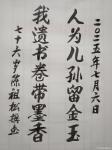 二〇二五年七月六日
人为儿孙留金玉
我遗书卷带墨香
七十六岁陈祖松撰并书